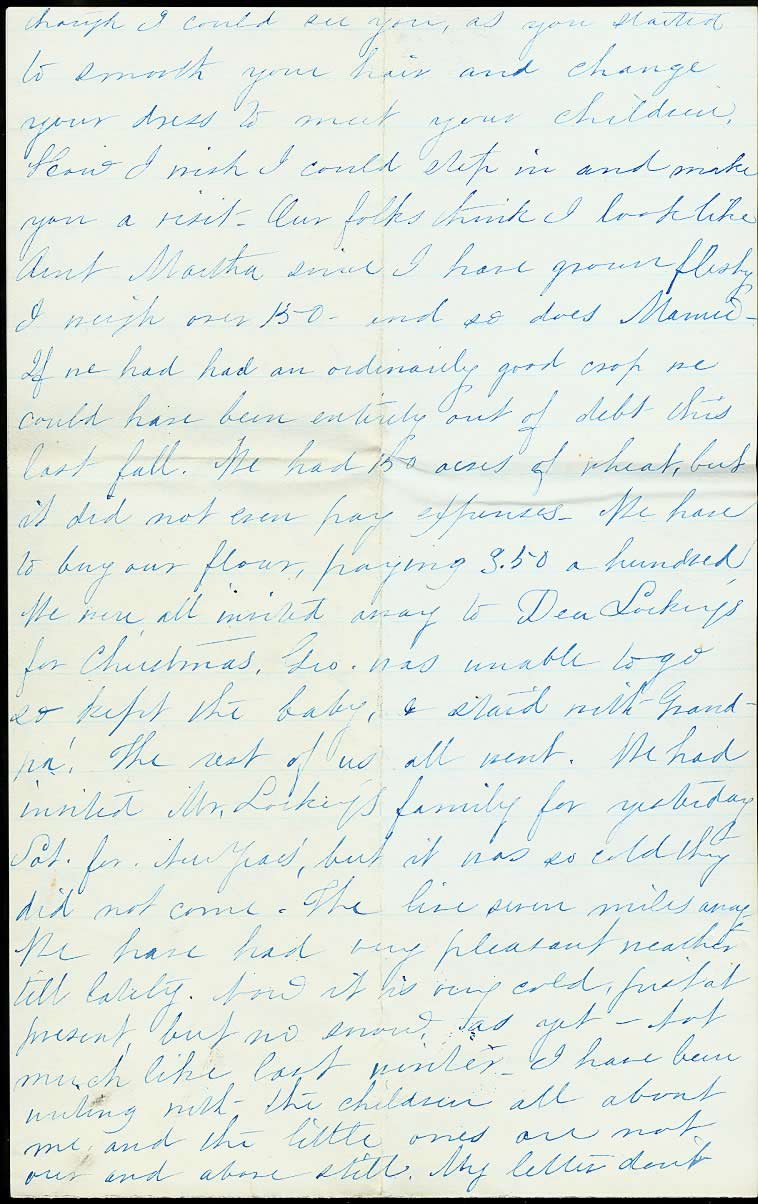 though I could see you, as you started
to smooth your hair and change
your dress to meet your children.
How I wish I could step in and make
you a visit - Our folks think I look like
Aunt Martha since I have grown fleshy
I weigh over 150 - and so does Mamie -
If we had had an ordinarily good crop we
could have been entirely out of debt this
last fall. We had 150 acres of wheat, but
it did not even pay expenses - We have
to buy our flour, paying 3.50 a hundred
We were all invited away to Dea Lockey's
for Christmas. Geo. was unable to go
so kept the baby, & staid with Grand-
pa! The rest of us all went. We had
invited Mr. Lockey's family for yesterday
Sat. for New Years, but it was so cold they
did not come. The live seven miles away -
We have had very pleasant weather
till lately. Now it is very cold, just at
present, but no snow as yet - not
much like last winter - I have been
writing with the children all about
me and the little ones are not
over and above still. My letter don't